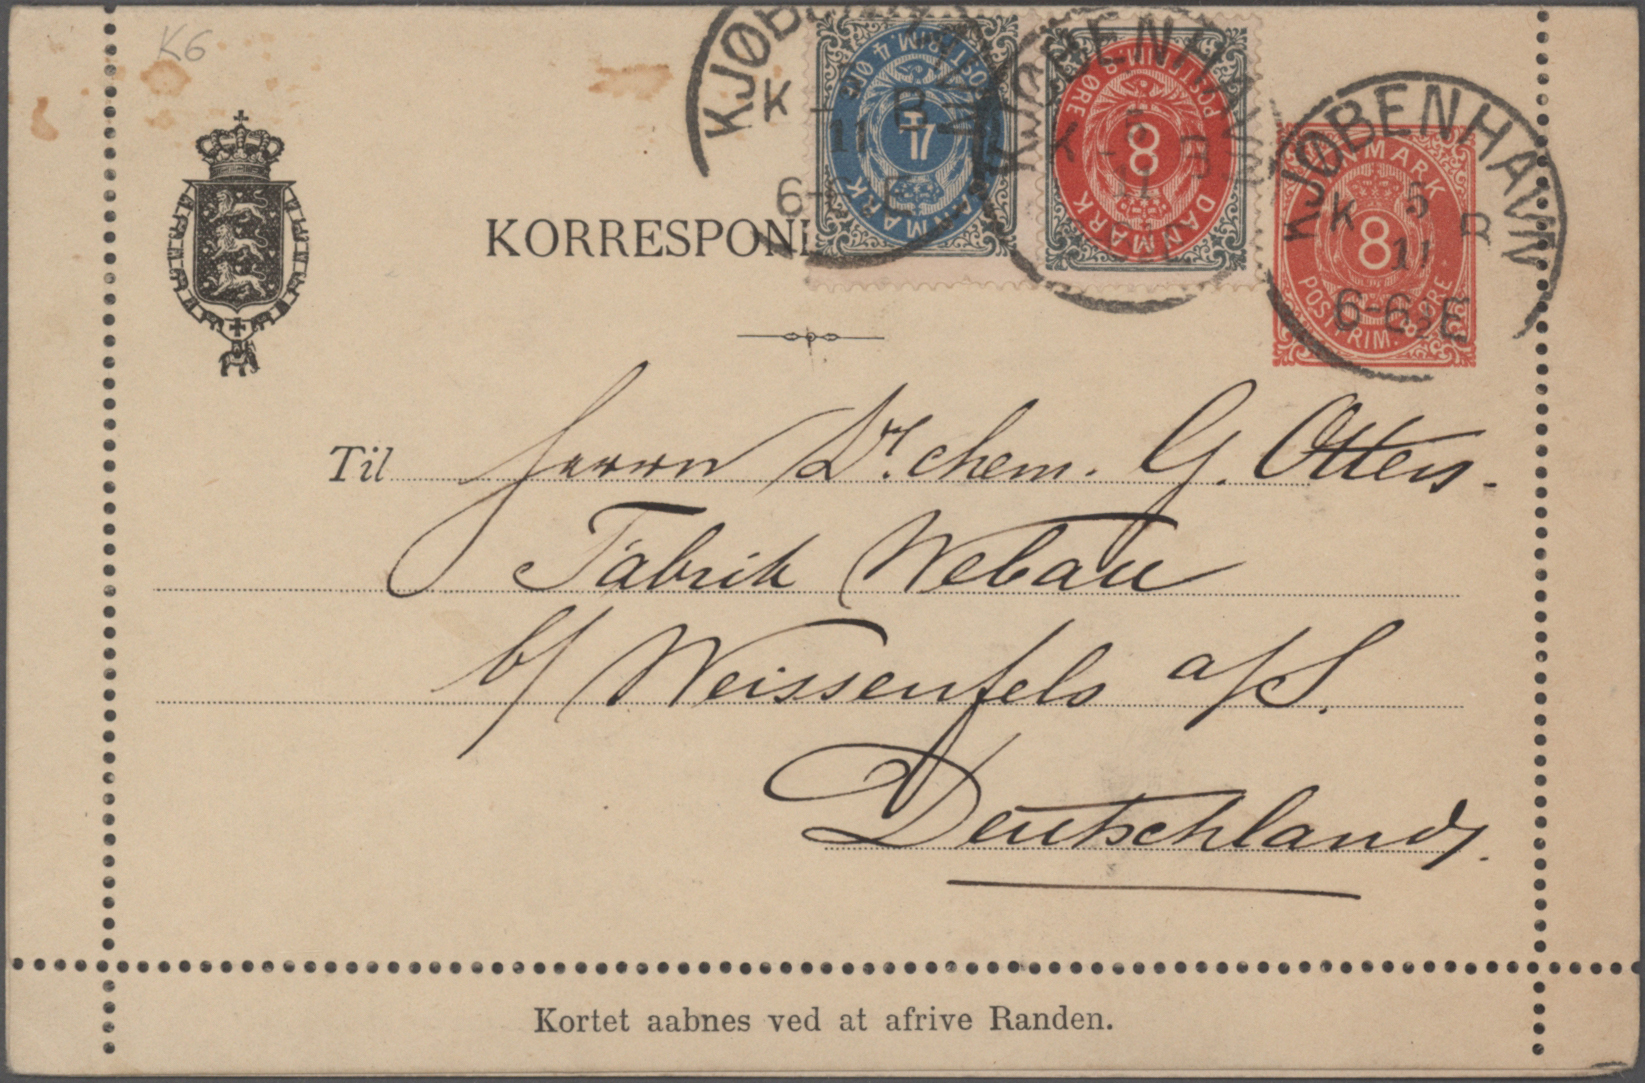 K6
KJØBENHAVN
K 5 B
11
6-6½E
DANMARK
POSTFRIM. 4 ØRE
4
KJØBENHAVN
K 5 B
11
DANMARK
POSTFRIM. 8 ØRE
8
KJØBENHAVN
K 5 B
11
6-6½E
DANMARK
8
POSTFRIM. 8 ØRE
KORRESPOND
Til Herrn Dr. chem. G. Otters.
Fabrik Webau
b/ Weissenfels a/S.
Deutschland.
Kortet aabnes ved at afrive Randen.